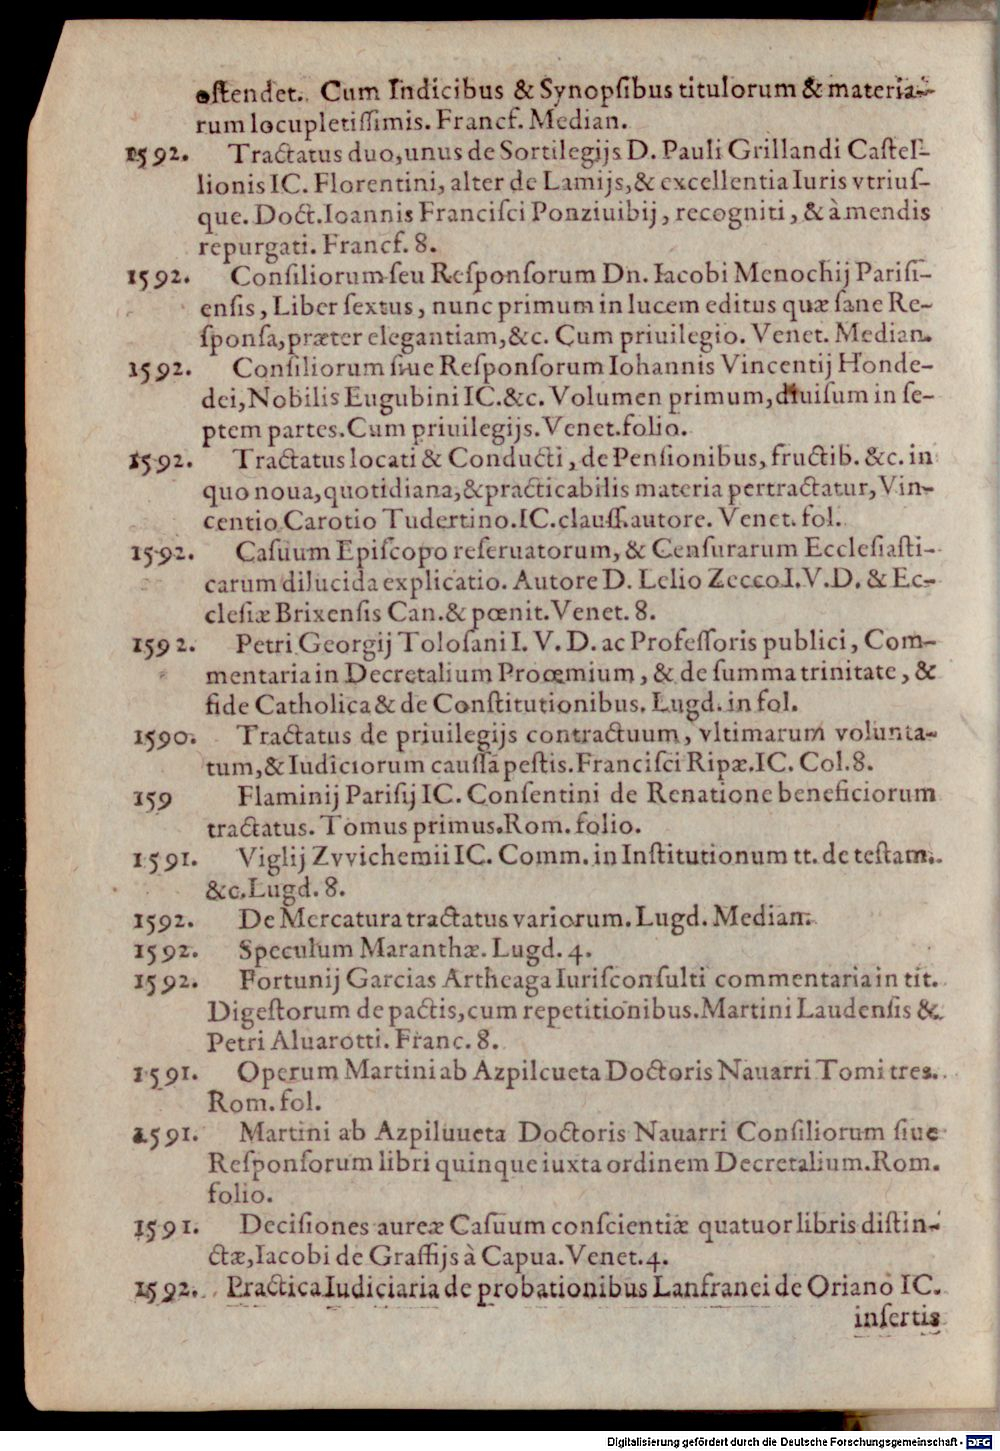 ostendet. Cum Indicibus & Synopſibus titulorum & materia-
rum locupletiſſimis. Francf. Median.
1592. Tractatus duo, unus de Sortilegijs D. Pauli Grillandi Caſtel-
lionis IC. Florentini, alter de Lamijs, & excellentia Iuris vtriuſ-
que. Doct. Ioannis Franciſci Ponziuibij, recogniti, & à mendis
repurgati. Francf. 8.
1592. Conſiliorum ſeu Reſponſorum Dn. Iacobi Menochij Pariſi-
enſis, Liber ſextus, nunc primum in lucem editus quæ ſane Re-
ſponſa, præter elegantiam, &c. Cum priuilegio. Venet. Median.
1592. Conſiliorum ſiue Reſponſorum Iohannis Vincentij Honde-
dei, Nobilis Eugubini IC. &c. Volumen primum, diuiſum in ſe-
ptem partes. Cum priuilegijs. Venet. folio.
1592. Tractatus locati & Conducti, de Penſionibus, fructib. &c. in
quo noua, quotidiana, & practicabilis materia pertractatur, Vin-
centio Carotio Tudertino. IC. clauſſ. autore. Venet. fol.
1592. Caſuum Epiſcopo reſeruatorum, & Cenſurarum Eccleſiaſti-
carum dilucida explicatio. Autore D. Lelio Zecco I. V. D. & Ec-
cleſiæ Brixenſis Can. & pœnit. Venet. 8.
1592. Petri Georgij Toloſani I. V. D. ac Profeſſoris publici, Com-
mentaria in Decretalium Proœmium, & de ſumma trinitate, &
fide Catholica & de Conſtitutionibus. Lugd. in fol.
1590. Tractatus de priuilegijs contractuum, vltimarum volunta-
tum, & Iudiciorum cauſſa peſtis. Franciſci Ripæ. IC. Col. 8.
159 Flaminij Pariſij IC. Conſentini de Renatione beneficiorum
tractatus. Tomus primus. Rom. folio.
1591. Viglij Zvvichemii IC. Comm. in Inſtitutionum tt. de teſtam.
&c. Lugd. 8.
1592. De Mercatura tractatus variorum. Lugd. Median.
1592. Speculum Maranthæ. Lugd. 4.
1592. Fortunij Garcias Artheaga Iuriſconſulti commentaria in tit.
Digeſtorum de pactis, cum repetitionibus. Martini Laudenſis &
Petri Aluarotti. Franc. 8.
1591. Operum Martini ab Azpilcueta Doctoris Nauarri Tomi tres.
Rom. fol.
1591. Martini ab Azpiluueta Doctoris Nauarri Conſiliorum ſiue
Reſponſorum libri quinque iuxta ordinem Decretalium. Rom.
folio.
1591. Deciſiones aureæ Caſuum conſcientiæ quatuor libris diſtin-
ctæ, Iacobi de Graffijs à Capua. Venet. 4.
1592. Practica Iudiciaria de probationibus Lanfranci de Oriano IC.
inſertis
Digitalisierung gefördert durch die Deutsche Forschungsgemeinschaft - DFG